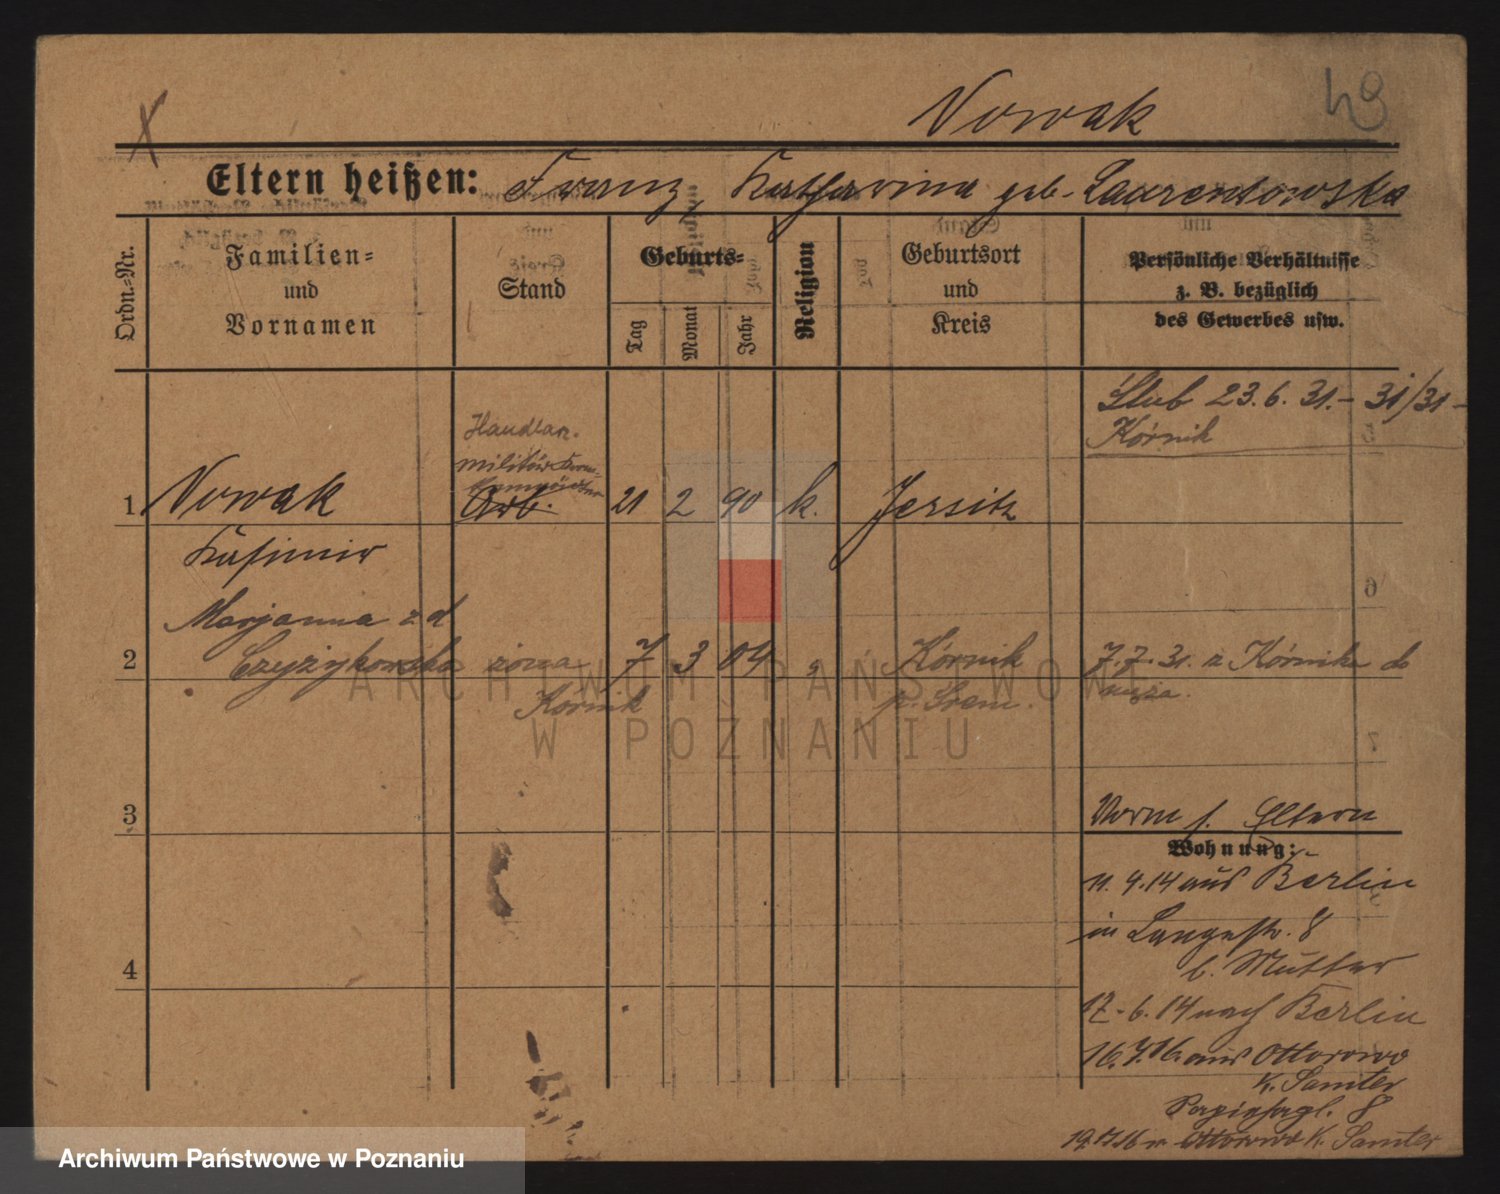 Nowak
Eltern heißen: Franz, Katharina geb. Laurentowska
Ordn.-Nr.
Familien-
und
Vornamen
Stand
Geburts-
Tag
Monat
Jahr
Religion
Geburtsort
und
Kreis
Persönliche Verhältnisse
z. B. bezüglich
des Gewerbes usw.
Ślub 23.6.31.- 31/31-
Kórnik
Handlar.
1 Nowak Arb. 21 2 90 k. Jersitz
Kasimir
Marjanna z d
2 Czyżykowska żona 7 3 04 " Kórnik 7.7.31. z Kórnika do
Kórnik p. Śrem. męża.
3
Vorm f. Eltern
Wohnung:
11.4.14 aus Berlin
in Langestr. 8
b. Mutter
4
17.6.14 nach Berlin
16.7.16. aus Ottorowo
K. Samter
8
Ottorowo K. Samter
ARCHIWUM PAŃSTWOWE
W POZNANIU
Archiwum Państwowe w Poznaniu